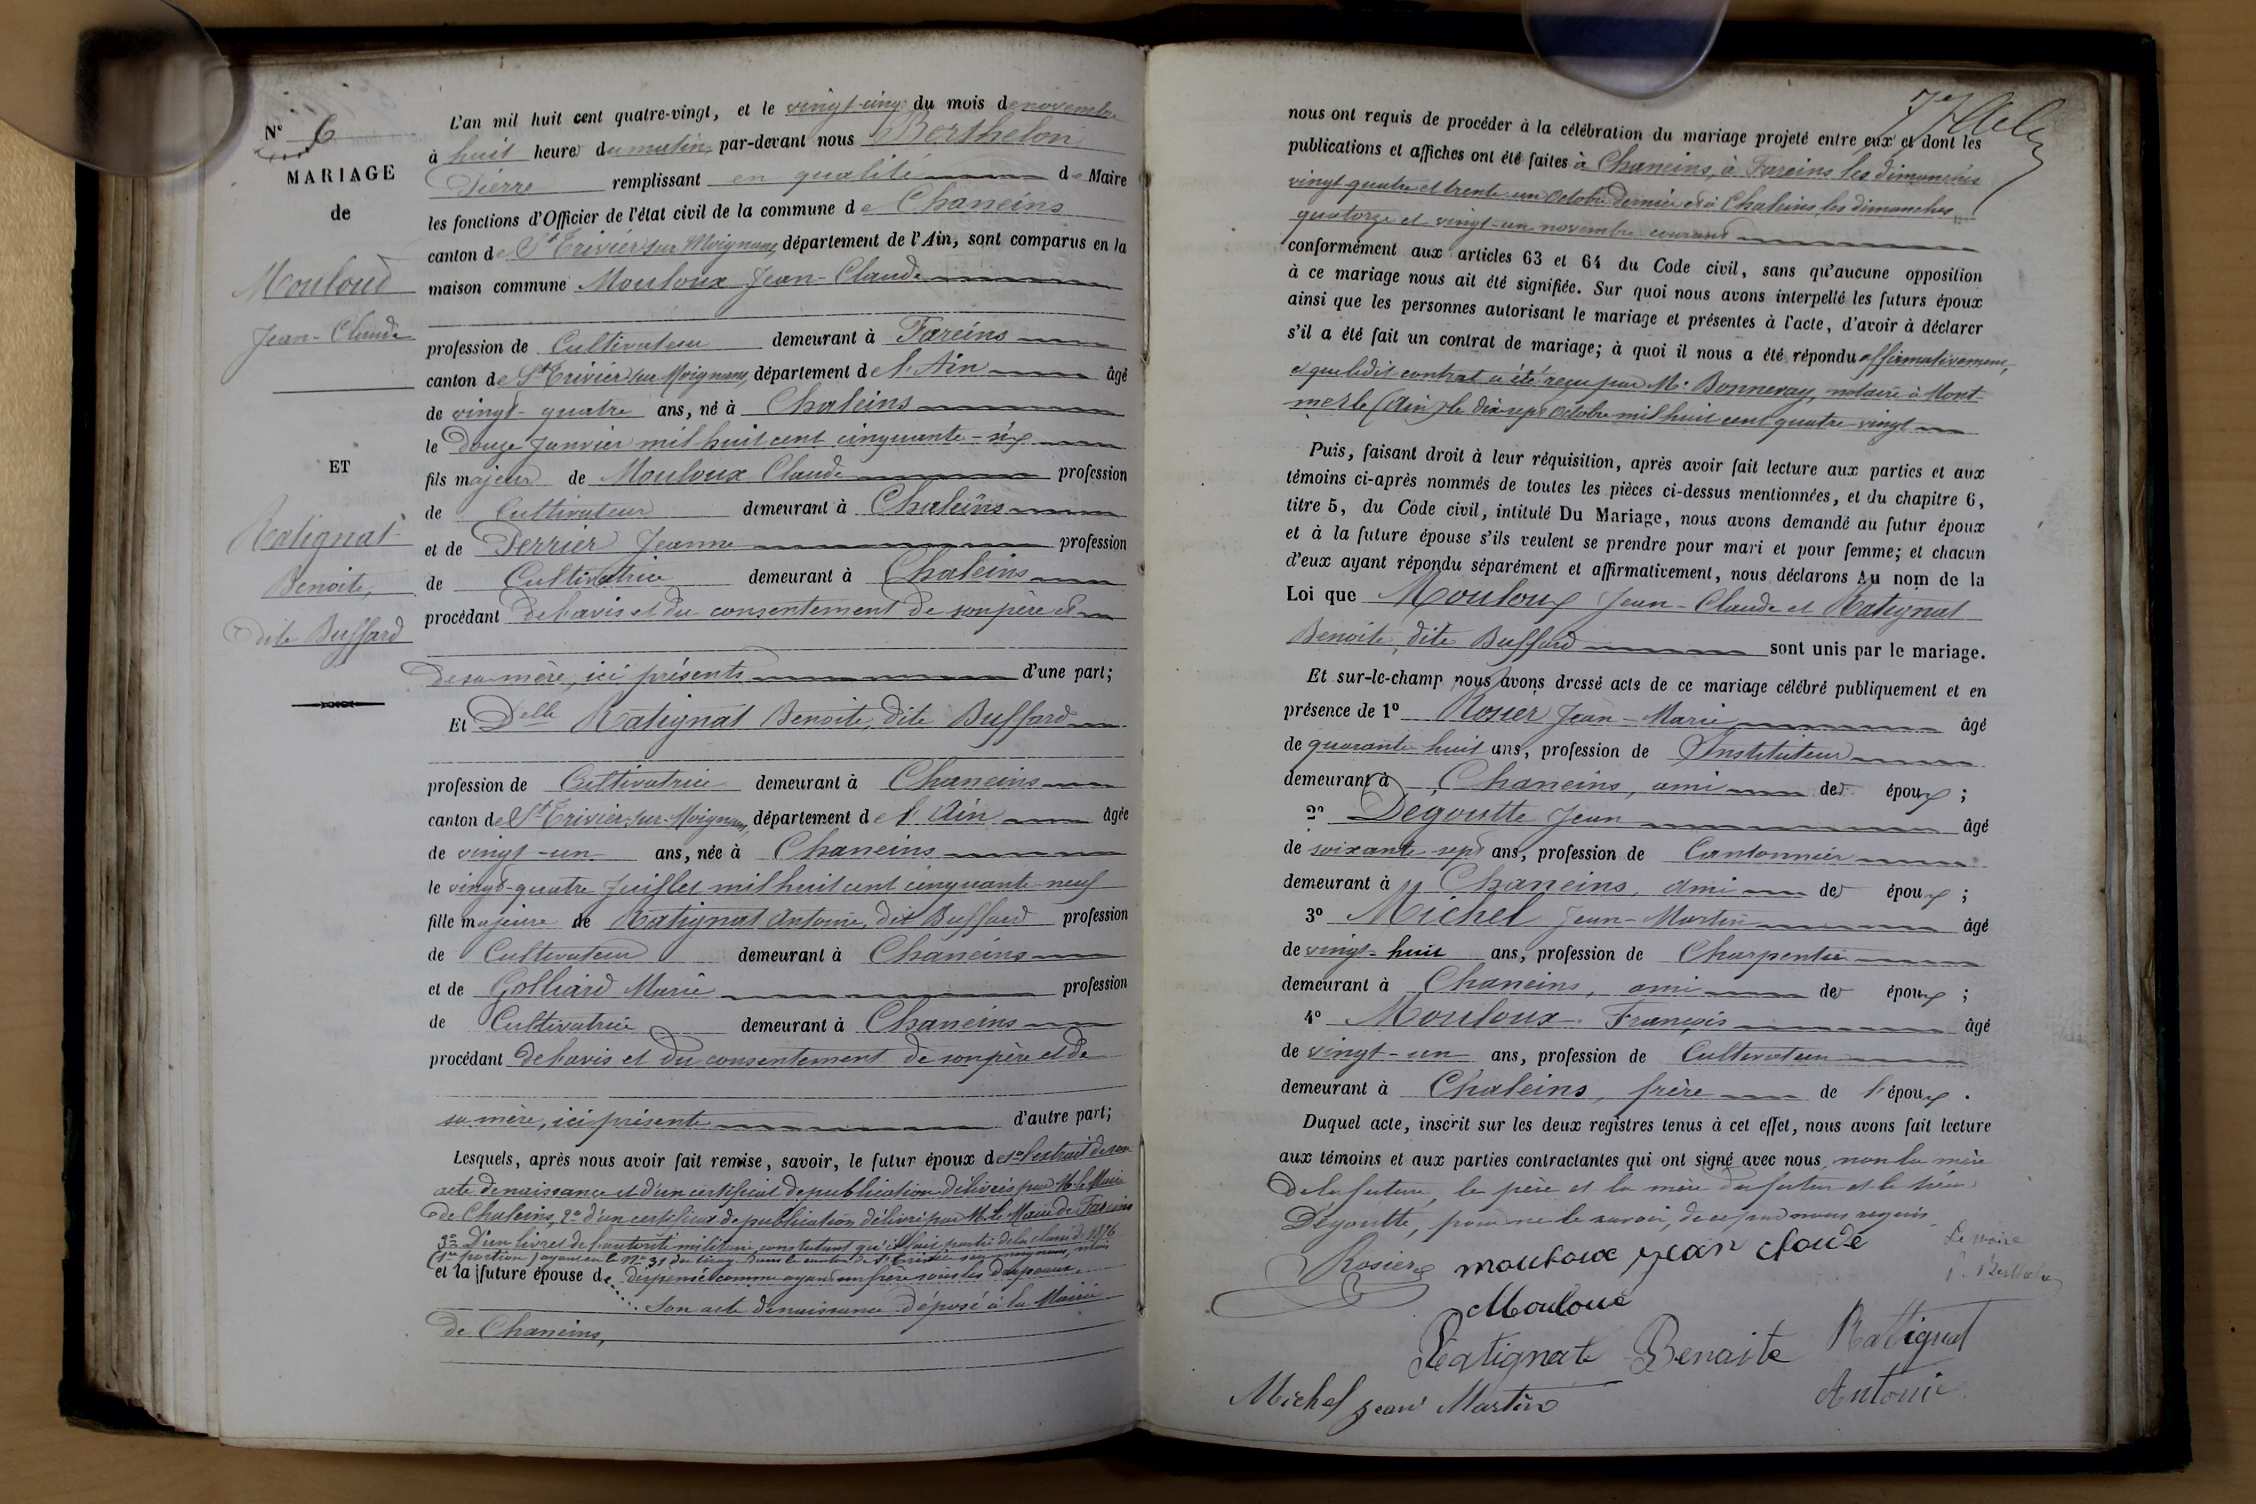 N° 6
MARIAGE
de
Mouloud
Jean-Claude
ET
Ratignat
Benoite,
dite Buffard
L'an mil huit cent quatre-vingt, et le vingt-cinq du mois de novembre
à huit heures du matin, par-devant nous Berthelon
Pierre remplissant en qualité de Maire
les fonctions d'Officier de l'état civil de la commune de Chaneins
canton de St Trivier sur Moignans, département de l'Ain, sont comparus en la
maison commune Mouloux Jean-Claude
profession de Cultivateur demeurant à Fareins
canton de St Trivier sur Moignans, département de l'Ain âgé
de vingt-quatre ans, né à Chaleins
le douze Janvier mil huit cent cinquante-six
fils majeur de Mouloux Claude profession
de Cultivateur demeurant à Chaleins
et de Perrier Jeanne profession
de Cultivatrice demeurant à Chaleins
procédant de l'avis et du consentement de son père et
de sa mère, ici présents d'une part;
Et Delle Ratignat Benoite, dite Buffard
profession de Cultivatrice demeurant à Chaneins
canton de St Trivier-sur-Moignans, département de l'Ain âgée
de vingt-un ans, née à Chaneins
le vingt-quatre Juillet mil huit cent cinquante-neuf
fille majeure de Ratignat Antoine, dit Buffard profession
de Cultivateur demeurant à Chaneins
et de Golliard Marie profession
de Cultivatrice demeurant à Chaneins
procédant de l'avis et du consentement de son père et de
sa mère, ici présents d'autre part;
Lesquels, après nous avoir fait remise, savoir, le futur époux de 1° l'extrait de son
acte de naissance et d'un certificat de publication délivrés par M. le Maire
de Chaleins, 2° d'un certificat de publication délivré par M. le Maire de Fareins
3° D'un livret de l'autorité militaire constatant qu'il fait partie de la classe de 1876
(1re portion) ayant eu le N° 31 du tirage dans le canton de St Trivier sur moignans, mais
et la future épouse de dispensé comme ayant un frère sous les drapeaux
Son acte de naissance déposé à la Mairie
de Chaneins,
nous ont requis de procéder à la célébration du mariage projeté entre eux et dont les
publications et affiches ont été faites à Chaneins, à Fareins les dimanches
vingt quatre et trente-un Octobre dernier et à Chaleins les dimanches
quatorze et vingt-un novembre courant
conformément aux articles 63 et 64 du Code civil, sans qu'aucune opposition
à ce mariage nous ait été signifiée. Sur quoi nous avons interpellé les futurs époux
ainsi que les personnes autorisant le mariage et présentes à l'acte, d'avoir à déclarer
s'il a été fait un contrat de mariage; à quoi il nous a été répondu affirmativement,
et que ledit contrat a été reçu par Me Bonnevay, notaire à Mont-
merle (Ain) le dix-sept Octobre mil huit cent quatre-vingt
Puis, faisant droit à leur réquisition, après avoir fait lecture aux parties et aux
témoins ci-après nommés de toutes les pièces ci-dessus mentionnées, et du chapitre 6,
titre 5, du Code civil, intitulé Du Mariage, nous avons demandé au futur époux
et à la future épouse s'ils veulent se prendre pour mari et pour femme; et chacun
d'eux ayant répondu séparément et affirmativement, nous déclarons Au nom de la
Loi que Mouloux Jean-Claude et Ratignat
Benoite, dite Buffard sont unis par le mariage.
Et sur-le-champ nous avons dressé acte de ce mariage célébré publiquement et en
présence de 1° Rosier Jean-Marie âgé
de quarante huit ans, profession de Instituteur
demeurant à Chaneins, ami des époux;
2° Dégoutte Jean âgé
de soixante-sept ans, profession de Cantonnier
demeurant à Chaneins, ami des époux;
3° Michel Jean-Martin âgé
de vingt-huit ans, profession de Charpentier
demeurant à Chaneins, ami des époux;
4° Mouloux François âgé
de vingt-un ans, profession de Cultivateur
demeurant à Chaleins, frère de l'époux.
Duquel acte, inscrit sur les deux registres tenus à cet effet, nous avons fait lecture
aux témoins et aux parties contractantes qui ont signé avec nous, non la mère
de la future, le père et la mère du futur et le sieur
Dégoutte, pour ne le savoir, de ce par nous requis
Rosier mouloux jean claude Le maire
P. Berthelon
Mouloux
Ratignat Benoite Ratignat
Antoine
Michel jean Martin